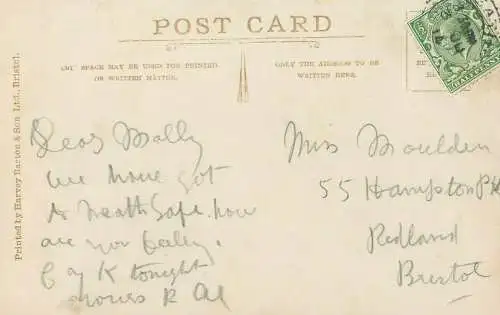 POST CARD
THIS SPACE MAY BE USED FOR PRINTED
OR WRITTEN MATTER.
ONLY THE ADDRESS TO BE
WRITTEN HERE.
Printed by Harvey Barton & Son Ltd., Bristol.
Dear Molly
we have got
to Neath Safe. how
are you
tonight
yours R
Miss Moulden
55 Hampton Pk
Redland
Bristol